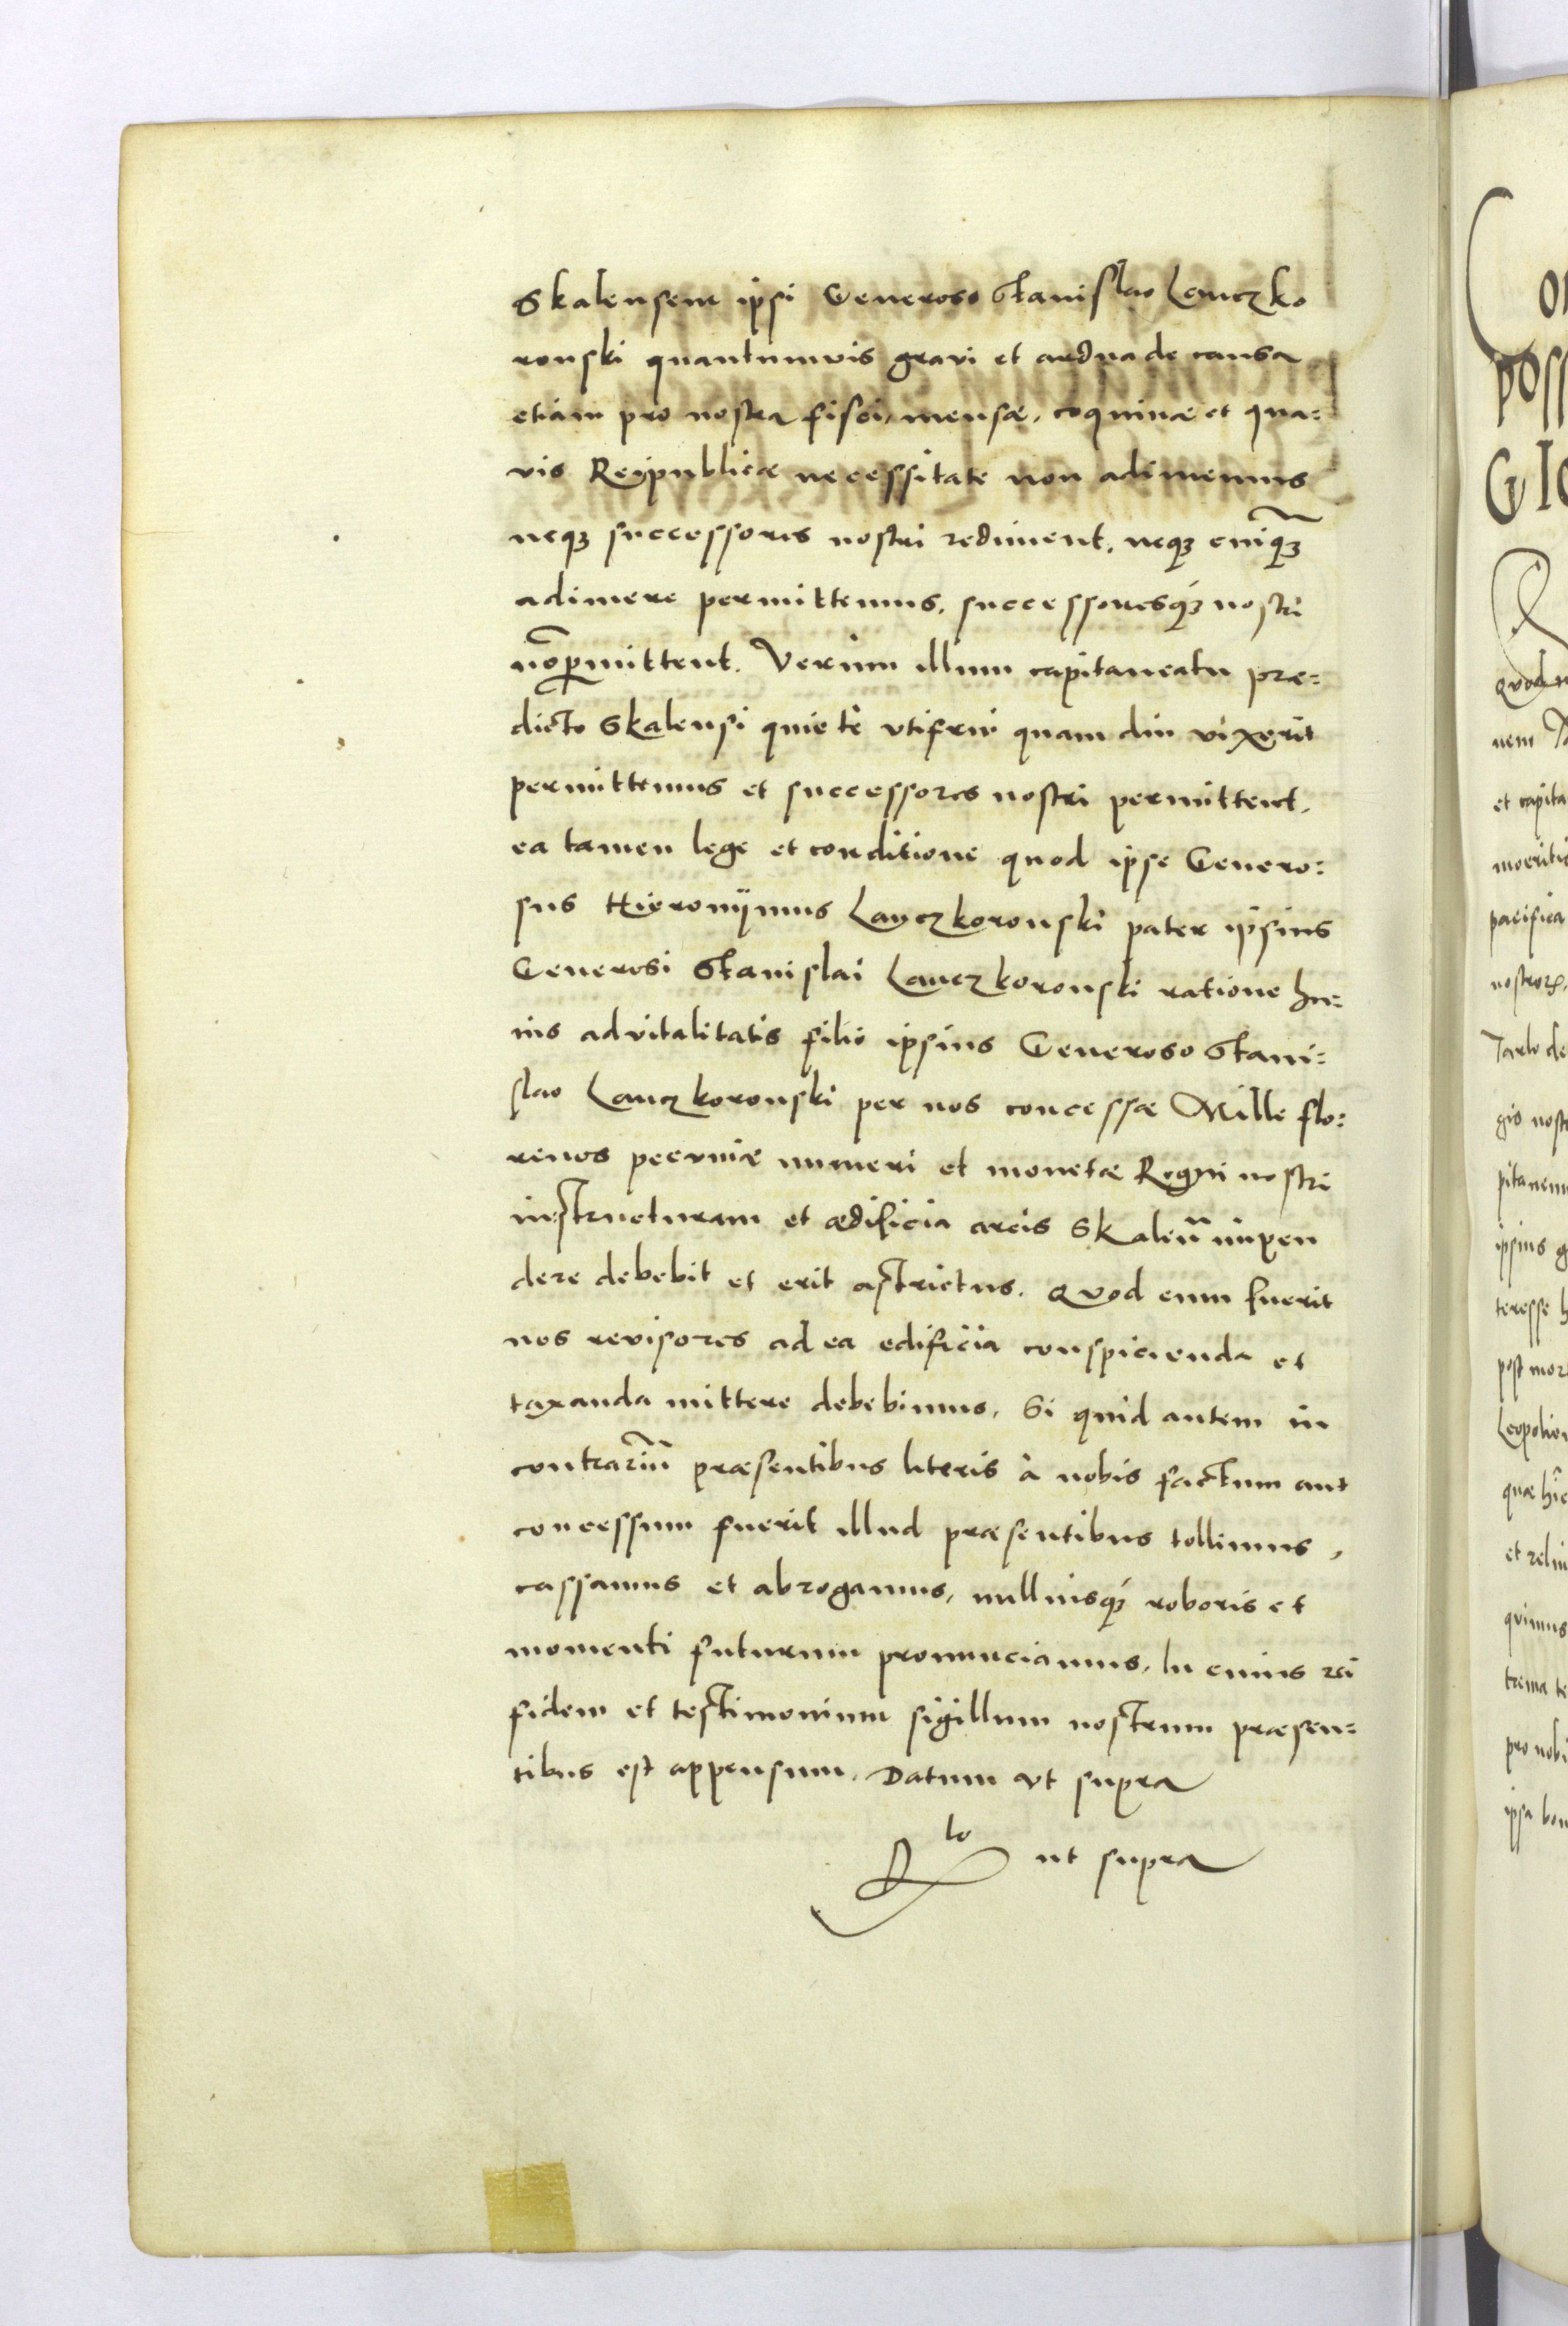 Skalensem ipsi Generoso Stanislao Lanczko
ronski quantumvis gravi et ardua de causa
etiam pro nostra fisci, mensæ, coquinæ et qua=
vis Reipublicæ necessitate non adimemus
neqз successores nostri rediment, neqз cuiq̃з
adimere permittemus, successoresqз nostri
nõ p̱mittent. Verum illum capitaneatu præ=
dicto Skalensi quiete vtifrui quam diu vixerit
permittemus et successores nostri permittent,
ea tamen lege et conditione quod ipse Genero=
sus Hieronijmus Lanczkoronski pater ipsius
Generosi Stanislai Lanczkoronski ratione hu=
ius advitalitatis filio ipsius Generoso Stani=
slao Lanczkoronski per nos concessæ Mille flo=
renos pecuniæ numeri et monetæ Regni nostri
in structuram et ædificia arcis Skaleñ impen
dere debebit et erit astrictus. Quod cum fuerit
nos revisores ad ea edificia conspicienda et
taxanda mittere debebimus. Si quid autem in
contrariũ præsentibus literis à nobis factum aut
concessum fuerit illud præsentibus tollimus,
cassamus et abrogamus, nulliusqз roboris et
momenti futurum pronunciamus. In cuius rei
fidem et testimonium sigillum nostrum præsen=
tibus est appensum. Datum vt supra
R lo ut supra